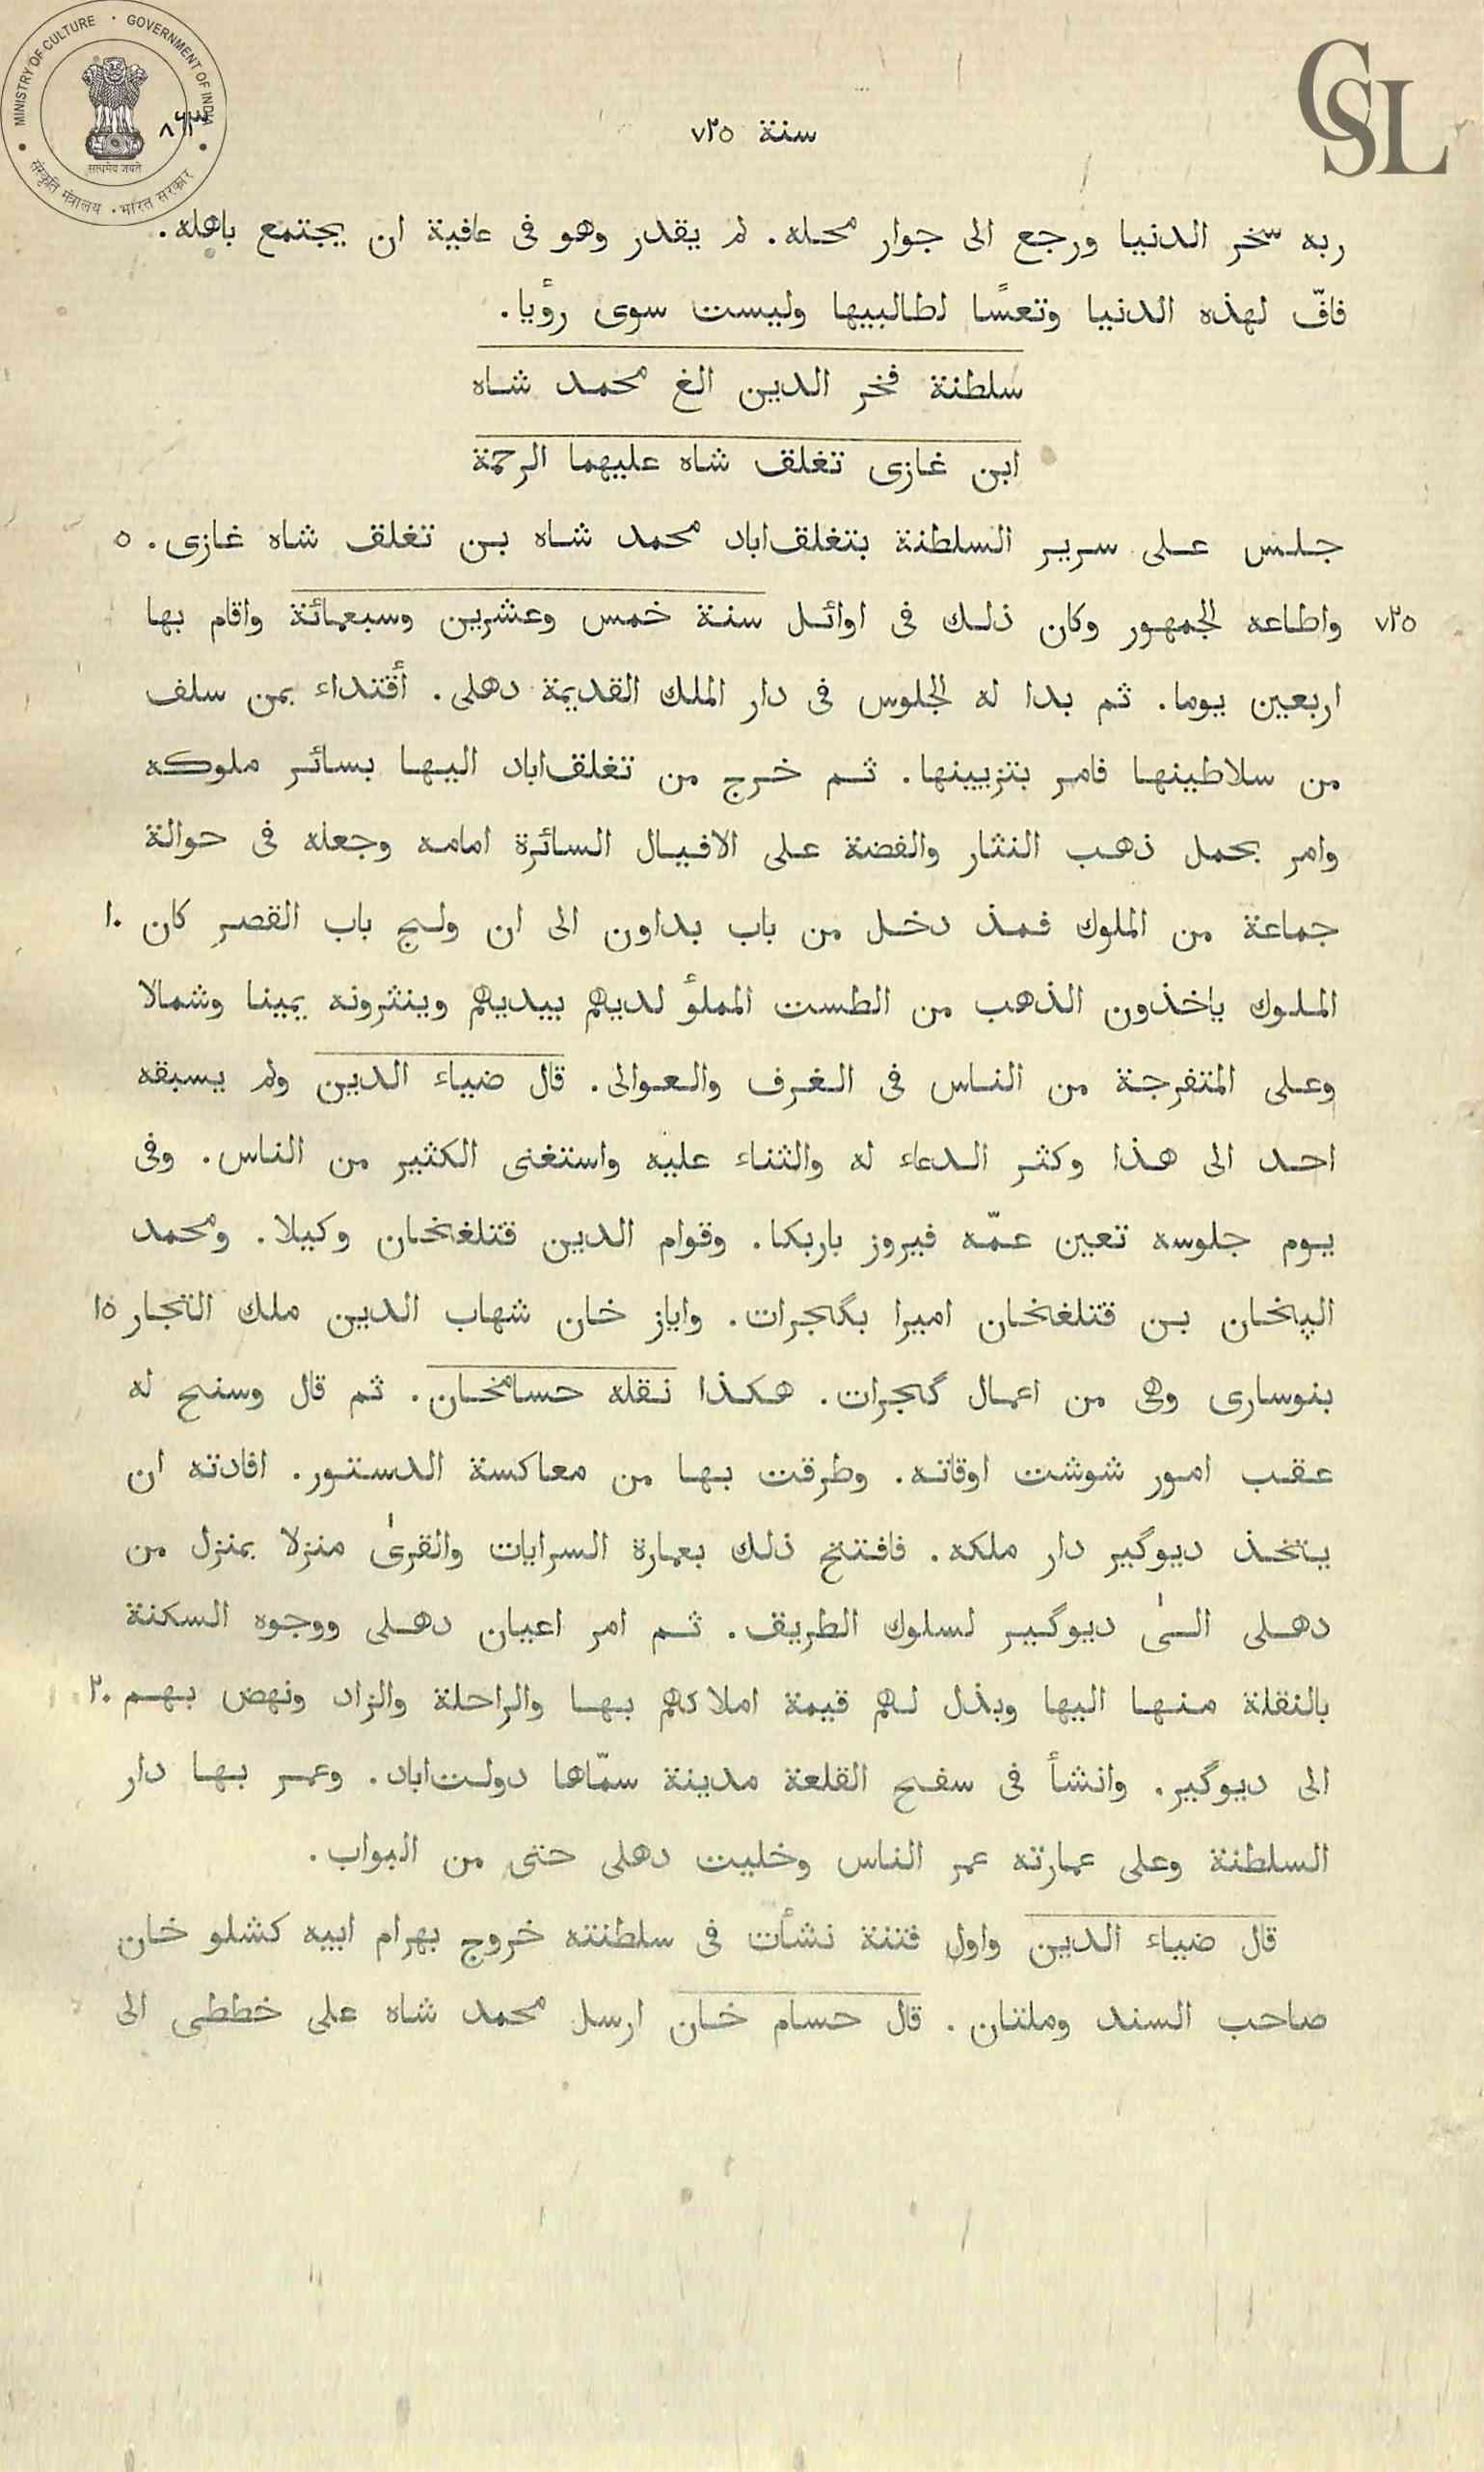 MINISTRY OF CULTURE · GOVERNMENT OF INDIA
सत्यमेव जयते
संस्कृति मंत्रालय · भारत सरकार
CSL
سنة ٧٢٥
ربه سخر الدنيا ورجع الى جوار محله. لم يقدر وهو فى عافية ان يجتمع باهله.
فافّ لهذه الدنيا وتعسًا لطالبيها وليست سوى رؤيا.
سلطنة فخر الدين الغ محمد شاه
ابن غازى تغلق شاه عليهما الرحمة
جلس على سرير السلطنة بتغلق‌اباد محمد شاه بن تغلق شاه غازى. ٥
٧٢٥ واطاعه الجمهور وكان ذلك فى اوائل سنة خمس وعشرين وسبعمائة واقام بها
اربعين يوما. ثم بدا له الجلوس فى دار الملك القديمة دهلى. أقتداء بمن سلف
من سلاطينها فامر بتزيينها. ثم خرج من تغلق‌اباد اليها بسائر ملوكه
وامر بحمل ذهب النثار والفضة على الافيال السائرة امامه وجعله فى حوالة
جماعة من الملوك فمذ دخل من باب بداون الى ان ولج باب القصر كان ١٠
الملوك ياخذون الذهب من الطست المملؤ لديهم بيديهم وينثرونه يمينا وشمالا
وعلى المتفرجة من الناس فى الغرف والعوالى. قال ضياء الدين ولم يسبقه
احد الى هذا وكثر الدعاء له والثناء عليه واستغنى الكثير من الناس. وفى
يوم جلوسه تعين عمّه فيروز باربكا. وقوام الدين قتلغخان وكيلا. ومحمد
الپخان بن قتلغخان اميرا بگجرات. واياز خان شهاب الدين ملك التجار ١٥
بنوسارى وهى من اعمال گجرات. هكذا نقله حسامخان. ثم قال وسنح له
عقب امور شوشت اوقاته. وطرقت بها من معاكسة الدستور. افادته ان
يتخذ ديوگير دار ملكه. فافتتح ذلك بعمارة السرايات والقرىٰ منزلا بمنزل من
دهلى الىٰ ديوگير لسلوك الطريق. ثم امر اعيان دهلى ووجوه السكنة
بالنقلة منها اليها وبذل لهم قيمة املاكهم بها والراحلة والزاد ونهض بهم ٢٠
الى ديوگير. وانشأ فى سفح القلعة مدينة سمّاها دولت‌اباد. وعمر بها دار
السلطنة وعلى عمارته عمر الناس وخليت دهلى حتى من البواب.
قال ضياء الدين واول فتنة نشأت فى سلطنته خروج بهرام ابيه كشلو خان
صاحب السند وملتان. قال حسام خان ارسل محمد شاه على خططى الى